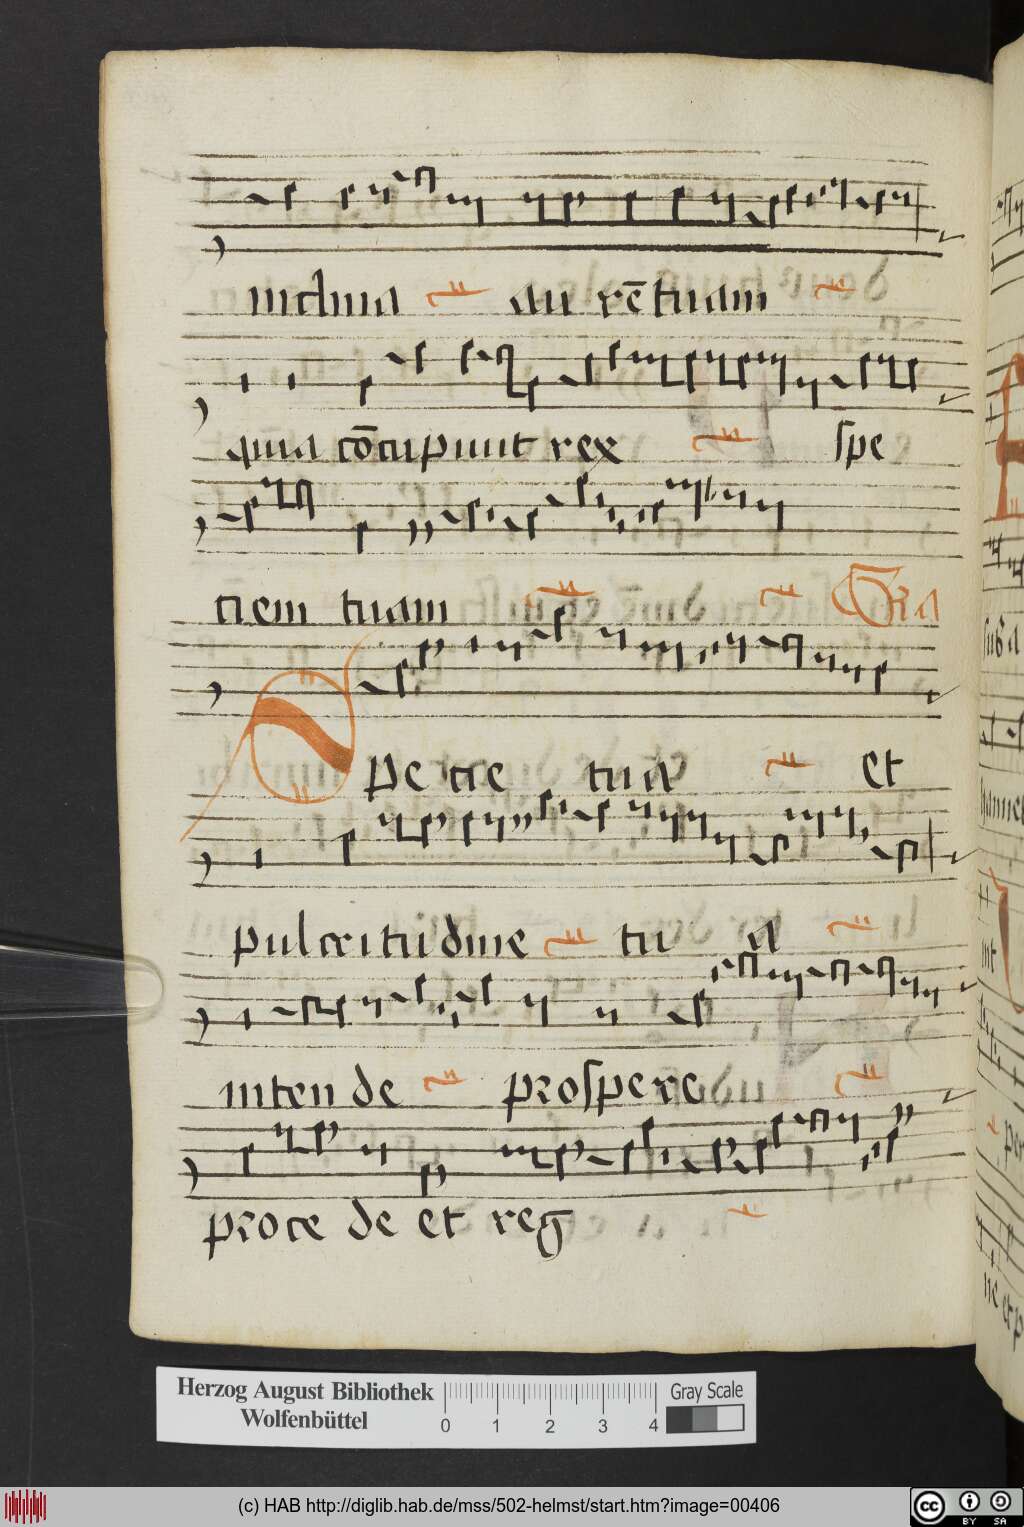 inclina au rē tuam
quia cōcupiuit rex spe
ciem tuam Gra
Spe cie tua et
pulcri tu dine tu a
inten de prospe re
proce de et reg
Herzog August Bibliothek
Wolfenbüttel
0 1 2 3 4
Gray Scale
(c) HAB http://diglib.hab.de/mss/502-helmst/start.htm?image=00406
cc BY SA